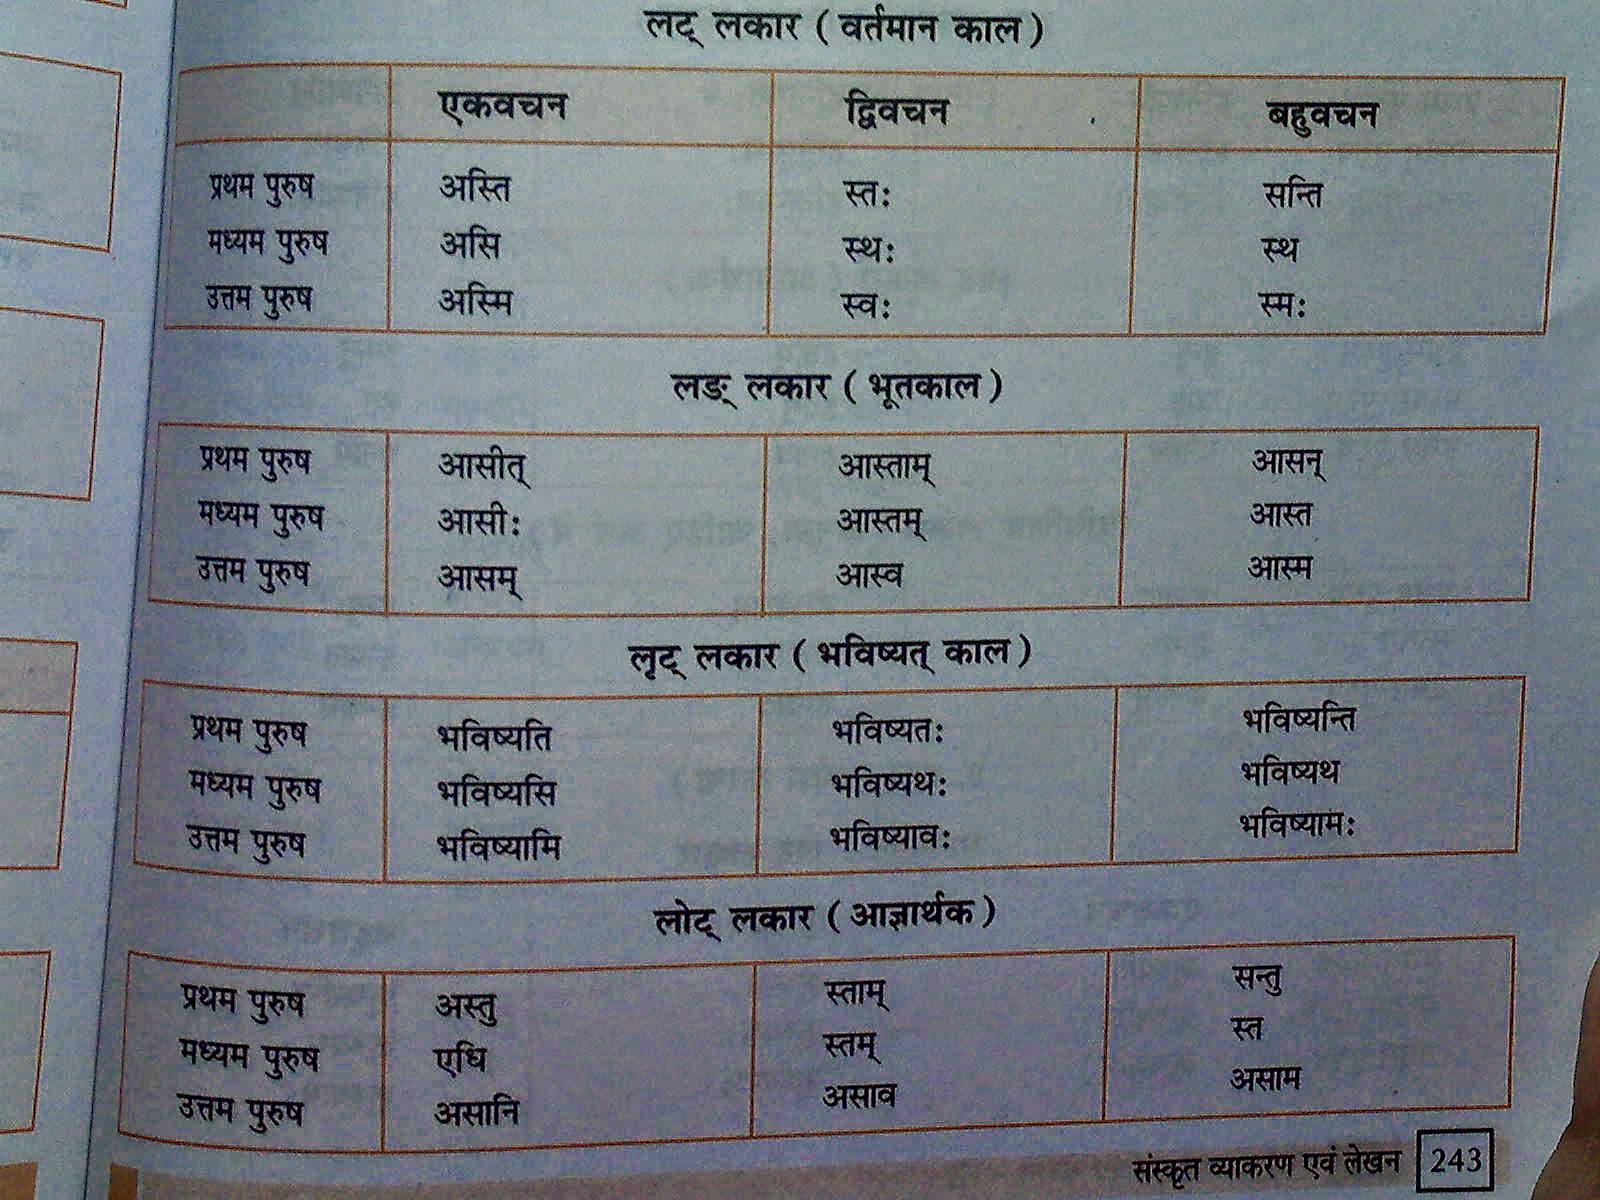 लट् लकार ( वर्तमान काल )
एकवचन द्विवचन बहुवचन
प्रथम पुरुष अस्ति स्तः सन्ति
मध्यम पुरुष असि स्थः स्थ
उत्तम पुरुष अस्मि स्वः स्मः
लङ् लकार ( भूतकाल )
प्रथम पुरुष आसीत् आस्ताम् आसन्
मध्यम पुरुष आसीः आस्तम् आस्त
उत्तम पुरुष आसम् आस्व आस्म
लृट् लकार ( भविष्यत् काल )
प्रथम पुरुष भविष्यति भविष्यतः भविष्यन्ति
मध्यम पुरुष भविष्यसि भविष्यथः भविष्यथ
उत्तम पुरुष भविष्यामि भविष्यावः भविष्यामः
लोट् लकार ( आज्ञार्थक )
प्रथम पुरुष अस्तु स्ताम् सन्तु
मध्यम पुरुष एधि स्तम् स्त
उत्तम पुरुष असानि असाव असाम
संस्कृत व्याकरण एवं लेखन 243